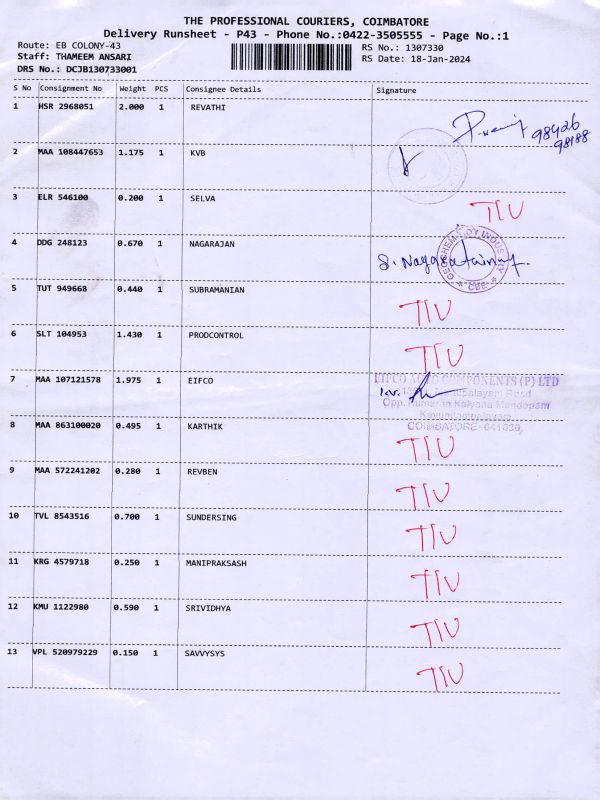 THE PROFESSIONAL COURIERS, COIMBATORE
Delivery Runsheet - P43 - Phone No.:0422-3505555 - Page No.:1
Route: EB COLONY-43 RS No.: 1307330
Staff: THAMEEM ANSARI RS Date: 18-Jan-2024
DRS No.: DCJB130733001
S No Consignment No Weight PCS Consignee Details Signature
1 HSR 2968051 2.000 1 REVATHI
98426
98188
2 MAA 108447653 1.175 1 KVB
3 ELR 546100 0.200 1 SELVA TIU
4 DDG 248123 0.670 1 NAGARAJAN
CBE
5 TUT 949668 0.440 1 SUBRAMANIAN TIU
6 SLT 104953 1.430 1 PRODCONTROL TIU
7 MAA 107121578 1.975 1 EIFCO
COMPONENTS (P) LTD
Road
Opp. Kumaran Kalyana Mandapam
COIMBATORE-641030
8 MAA 863100020 0.495 1 KARTHIK TIU
9 MAA 572241202 0.280 1 REVBEN TIU
10 TVL 8543516 0.700 1 SUNDERSING TIU
11 KRG 4579718 0.250 1 MANIPRAKSASH TIU
12 KMU 1122980 0.590 1 SRIVIDHYA TIU
13 VPL 520979229 0.150 1 SAVVYSYS TIU